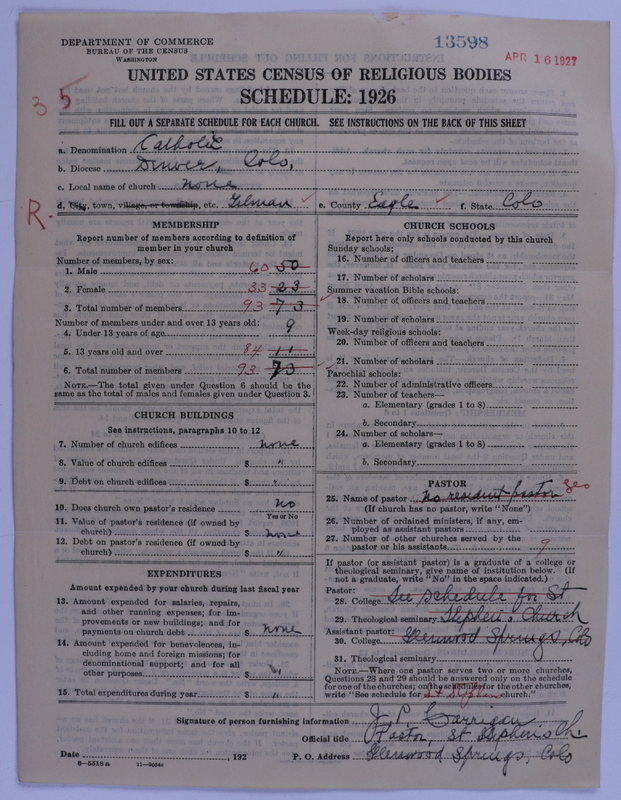 DEPARTMENT OF COMMERCE
BUREAU OF THE CENSUS
WASHINGTON
13598
APR 16 1927
UNITED STATES CENSUS OF RELIGIOUS BODIES
SCHEDULE: 1926
3 5
FILL OUT A SEPARATE SCHEDULE FOR EACH CHURCH. SEE INSTRUCTIONS ON THE BACK OF THIS SHEET
a. Denomination Catholic
b. Diocese Denver, Colo,
c. Local name of church none
R.
d. City, town, village, or township, etc. Gilman e. County Eagle f. State Colo
MEMBERSHIP
Report number of members according to definition of
member in your church
Number of members, by sex:
1. Male 60 50
2. Female 33 23
3. Total number of members 93 73
Number of members under and over 13 years old:
4. Under 13 years of age 9
5. 13 years old and over 84 11
6. Total number of members 93 73
NOTE.—The total given under Question 6 should be the
same as the total of males and females given under Question 3.
CHURCH BUILDINGS
See instructions, paragraphs 10 to 12
7. Number of church edifices none
8. Value of church edifices $ "
9. Debt on church edifices $ "
10. Does church own pastor's residence no
Yes or No
11. Value of pastor's residence (if owned by
church) $ none
12. Debt on pastor's residence (if owned by
church) $ "
EXPENDITURES
Amount expended by your church during last fiscal year
13. Amount expended for salaries, repairs,
and other running expenses; for im-
provements or new buildings; and for
payments on church debt $ none
14. Amount expended for benevolences, in-
cluding home and foreign missions; for
denominational support; and for all
other purposes $ "
15. Total expenditures during year $ "
CHURCH SCHOOLS
Report here only schools conducted by this church
Sunday schools:
16. Number of officers and teachers
17. Number of scholars
Summer vacation Bible schools:
18. Number of officers and teachers
19. Number of scholars
Week-day religious schools:
20. Number of officers and teachers
21. Number of scholars
Parochial schools:
22. Number of administrative officers
23. Number of teachers—
a. Elementary (grades 1 to 8)
b. Secondary
24. Number of scholars—
a. Elementary (grades 1 to 8)
b. Secondary
PASTOR
25. Name of pastor no resident pastor
(If church has no pastor, write "None")
26. Number of ordained ministers, if any, em-
ployed as assistant pastors
27. Number of other churches served by the
pastor or his assistants 9
If pastor (or assistant pastor) is a graduate of a college or
theological seminary, give name of institution below. (If
not a graduate, write "No" in the space indicated.)
Pastor:
28. College See schedule for St
29. Theological seminary Stephen's Church
Assistant pastor:
30. College Glenwood Springs, Colo
31. Theological seminary
NOTE.—Where one pastor serves two or more churches,
Questions 28 and 29 should be answered only on the schedule
for one of the churches; on the schedules for the other churches,
write "See schedule for St Stephen church."
Signature of person furnishing information J. P. Carrigan
Official title Pastor, St Stephens Ch.
Date , 192 P. O. Address Glenwood Springs, Colo
8—5513 a 11—9054a